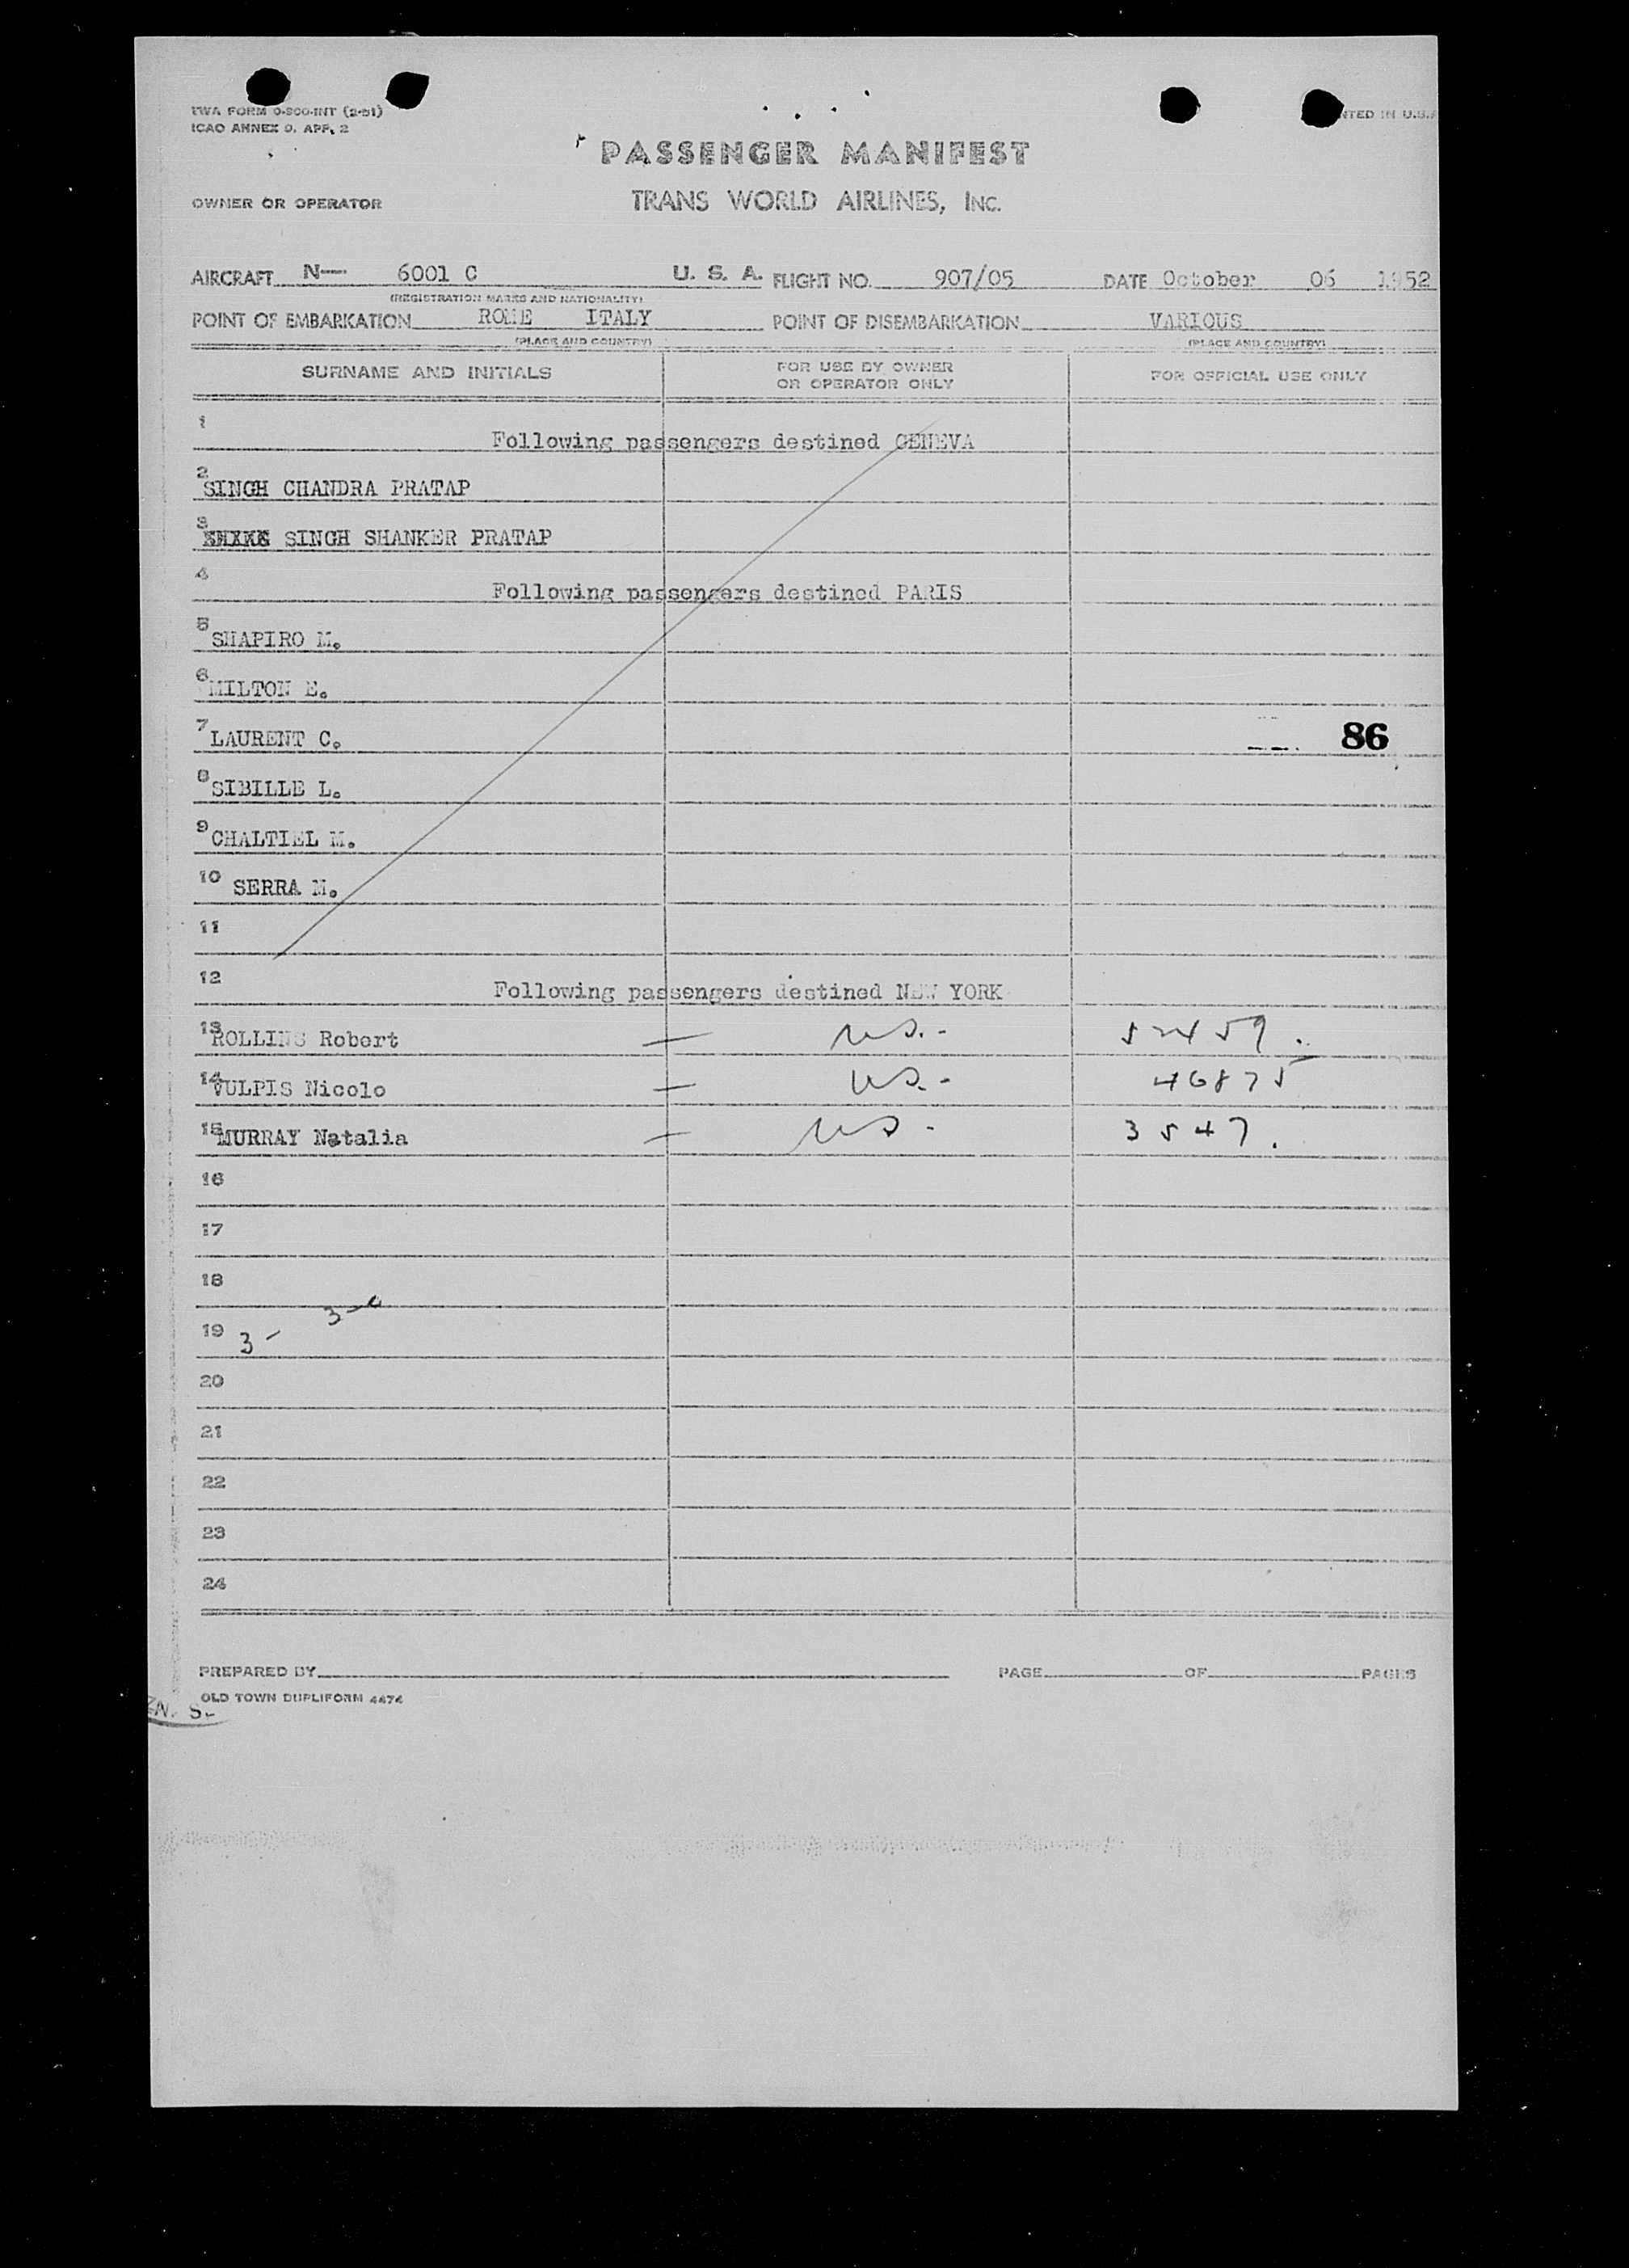 TWA FORM O-800-INT (2-51)
ICAO ANNEX 9, APP. 2
NTED IN U.S.A
PASSENGER MANIFEST
OWNER OR OPERATOR TRANS WORLD AIRLINES, INC.
AIRCRAFT N— 6001 C U. S. A. FLIGHT NO. 907/05 DATE October 06 1952
(REGISTRATION MARKS AND NATIONALITY)
POINT OF EMBARKATION ROME ITALY POINT OF DISEMBARKATION VARIOUS
(PLACE AND COUNTRY) (PLACE AND COUNTRY)
SURNAME AND INITIALS FOR USE BY OWNER OR OPERATOR ONLY FOR OFFICIAL USE ONLY
1 Following passengers destined GENEVA
2 SINGH CHANDRA PRATAP
3 SINGH SHANKER PRATAP
4 Following passengers destined PARIS
5 SHAPIRO M.
6 MILTON E.
7 LAURENT C. 86
8 SIBILLE L.
9 CHALTIEL M.
10 SERRA M.
11
12 Following passengers destined NEW YORK
13 ROLLINS Robert — US. - 52459.
14 VULPIS Nicolo — US. - 46875
15 MURRAY Natalia — US - 3547.
16
17
18
19 3 - 3-0
20
21
22
23
24
PREPARED BY PAGE OF PAGES
OLD TOWN DUPLIFORM 4474